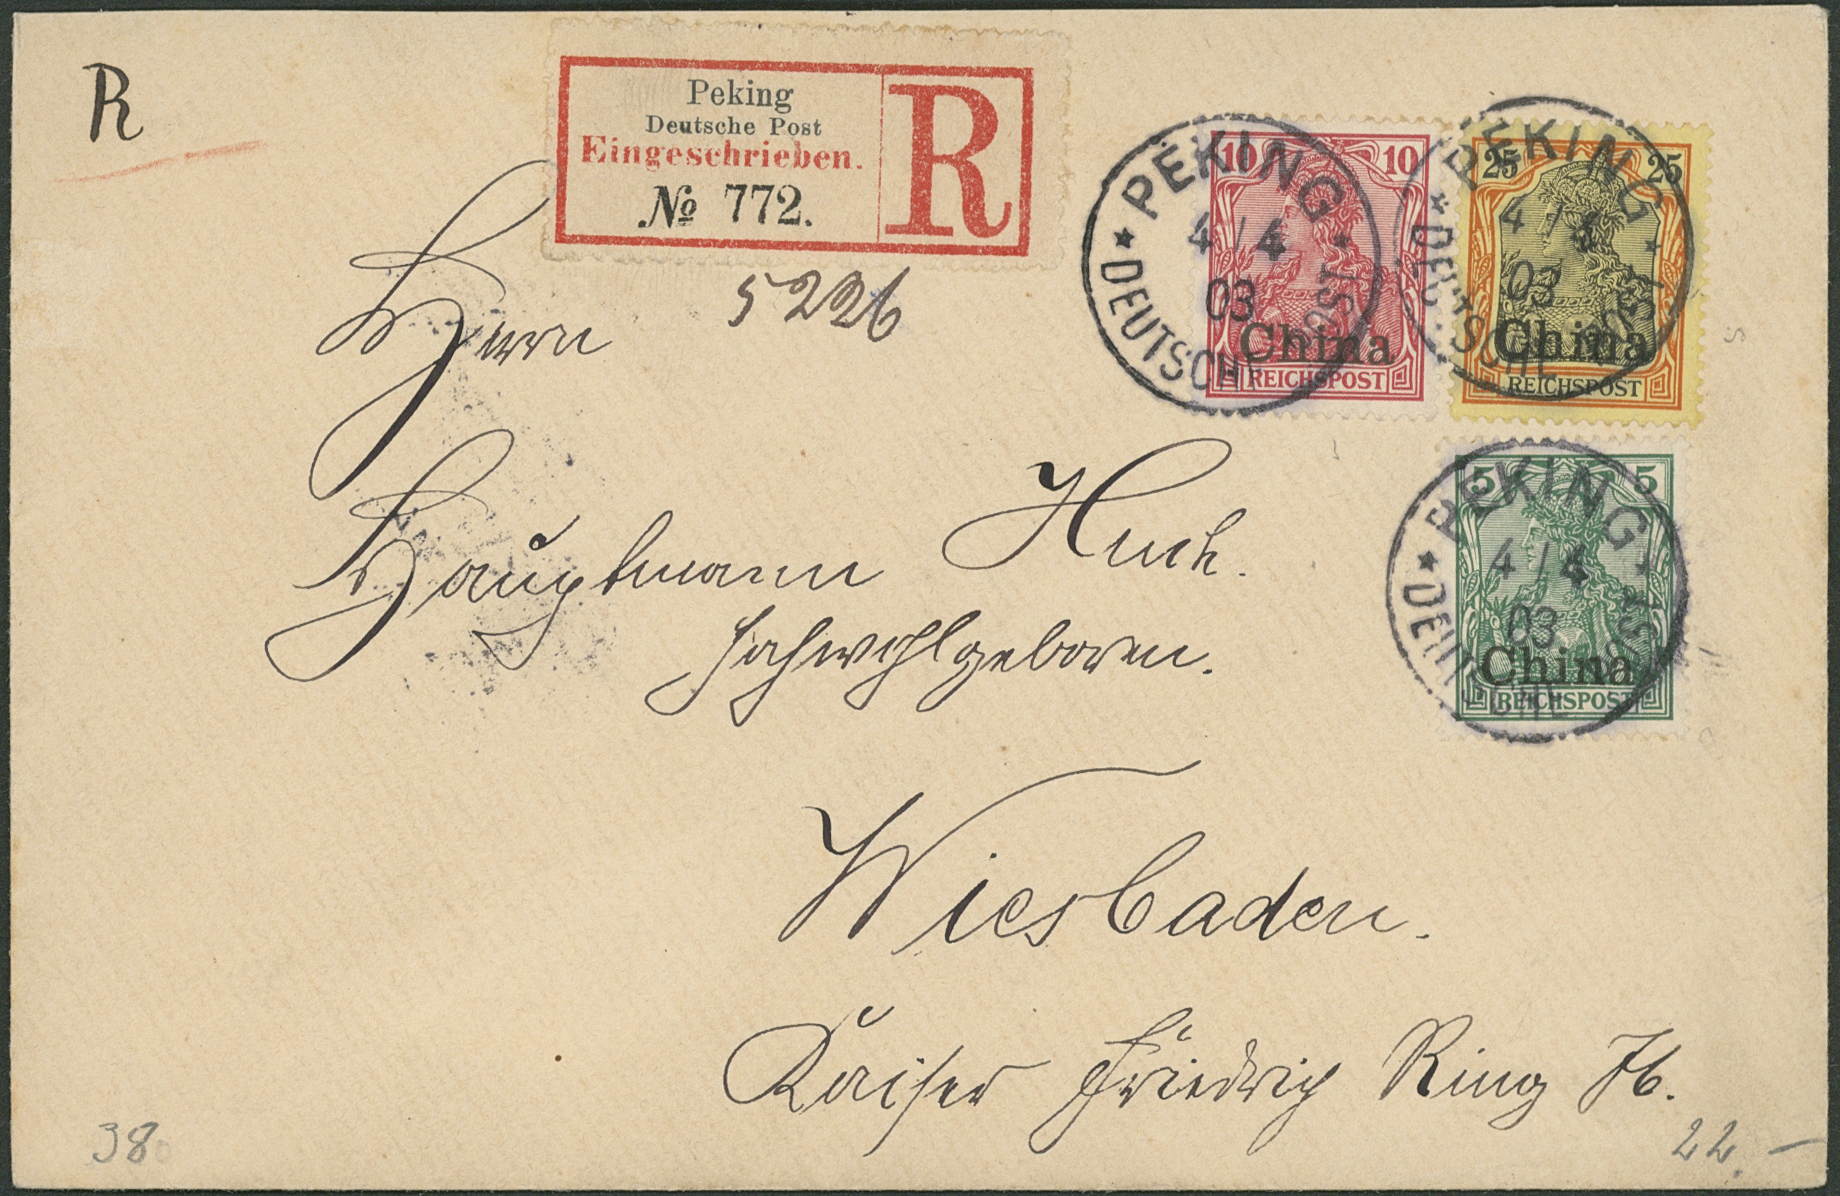 R
Peking
Deutsche Post
Eingeschrieben.
№ 772.
R
5226
10 10
China
REICHSPOST
PEKING
4/4
03
* DEUTSCHE POST *
25 25
China
REICHSPOST
PEKING
4/4
03
* DEUTSCHE POST *
5 5
China
REICHSPOST
PEKING
4/4
03
* DEUTSCHE POST *
Herrn
Hauptmann Huch.
Hochwohlgeboren.
Wiesbaden.
Kaiser Friedrich Ring
38
22.–